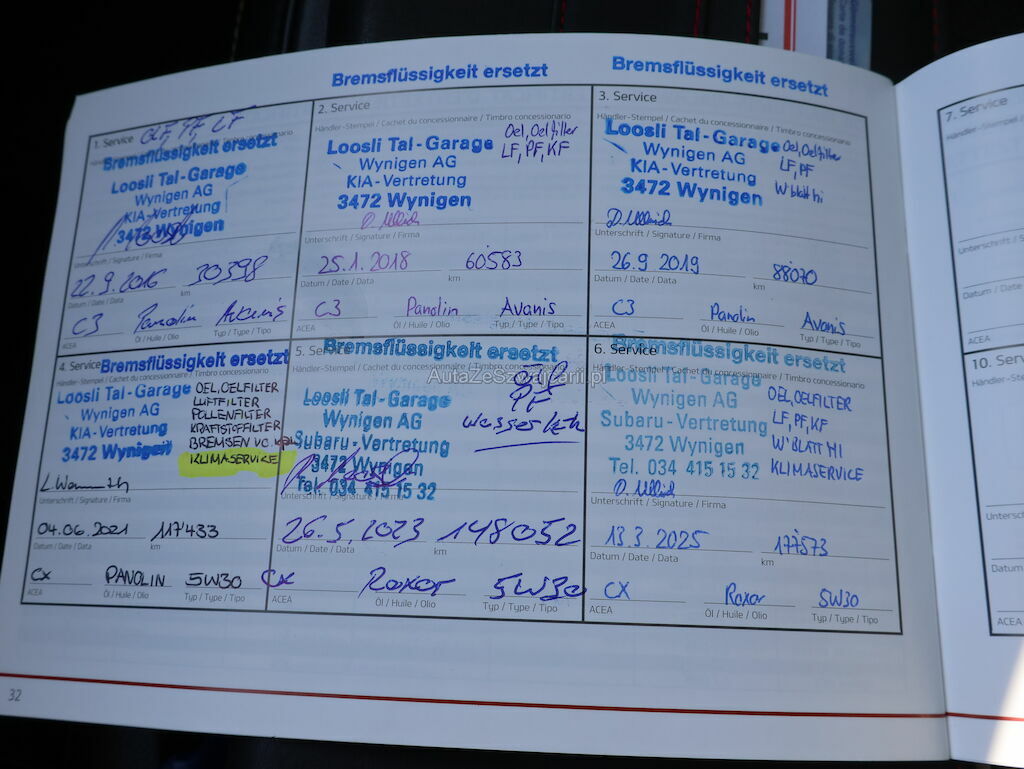 Bremsflüssigkeit ersetzt
Bremsflüssigkeit ersetzt
1. Service
Bremsflüssigkeit ersetzt
Loosli Tal-Garage
Wynigen AG
KIA-Vertretung
3472 Wynigen
Unterschrift / Signature / Firma
22.9.2016 30398
Datum / Date / Data km
C3 Panolin Avanis
ACEA Öl / Huile / Olio Typ / Type / Tipo
2. Service
Händler-Stempel / Cachet du concessionnaire / Timbro concessionario
Loosli Tal-Garage
Wynigen AG
KIA-Vertretung
3472 Wynigen
Oel, Oelfilter
LF, PF, KF
D. Ullrich
Unterschrift / Signature / Firma
25.1.2018 60583
Datum / Date / Data km
C3 Panolin Avanis
ACEA Öl / Huile / Olio Typ / Type / Tipo
3. Service
Händler-Stempel / Cachet du concessionnaire / Timbro concessionario
Loosli Tal-Garage
Wynigen AG
KIA-Vertretung
3472 Wynigen
Oel, Oelfilter
LF, PF
W'blatt hi
D. Ullrich
Unterschrift / Signature / Firma
26.9.2019 88070
Datum / Date / Data km
C3 Panolin Avanis
ACEA Öl / Huile / Olio Typ / Type / Tipo
4. Service
Bremsflüssigkeit ersetzt
Händler-Stempel / Cachet du concessionnaire / Timbro concessionario
Loosli Tal-Garage
Wynigen AG
KIA-Vertretung
3472 Wynigen
OEL, OELFILTER
LUFTFILTER
POLLENFILTER
KRAFTSTOFFILTER
BREMSEN
KLIMASERVICE
Unterschrift / Signature / Firma
04.06.2021 117433
Datum / Date / Data km
CX PANOLIN 5W30
ACEA Öl / Huile / Olio Typ / Type / Tipo
5. Service
Bremsflüssigkeit ersetzt
Loosli Tal-Garage
Wynigen AG
Subaru-Vertretung
3472 Wynigen
Tel. 034 415 15 32
PF
Unterschrift / Signature / Firma
26.5.2023 148052
Datum / Date / Data km
CX Roxor 5W30
ACEA Öl / Huile / Olio Typ / Type / Tipo
6. Service
Bremsflüssigkeit ersetzt
Loosli Tal-Garage
Wynigen AG
Subaru-Vertretung
3472 Wynigen
Tel. 034 415 15 32
OEL, OELFILTER
LF, PF, KF
W'BLATT HI
KLIMASERVICE
D. Ullrich
Unterschrift / Signature / Firma
13.3.2025 177573
Datum / Date / Data km
CX Roxor 5W30
ACEA Öl / Huile / Olio Typ / Type / Tipo
AutaZeSzwajcarii.pl
32
7. Service
Händler-Stempel /
Unterschrift /
Datum / Date /
ACEA
10. Service
Händler-Stem
Unterschri
Datum
ACEA